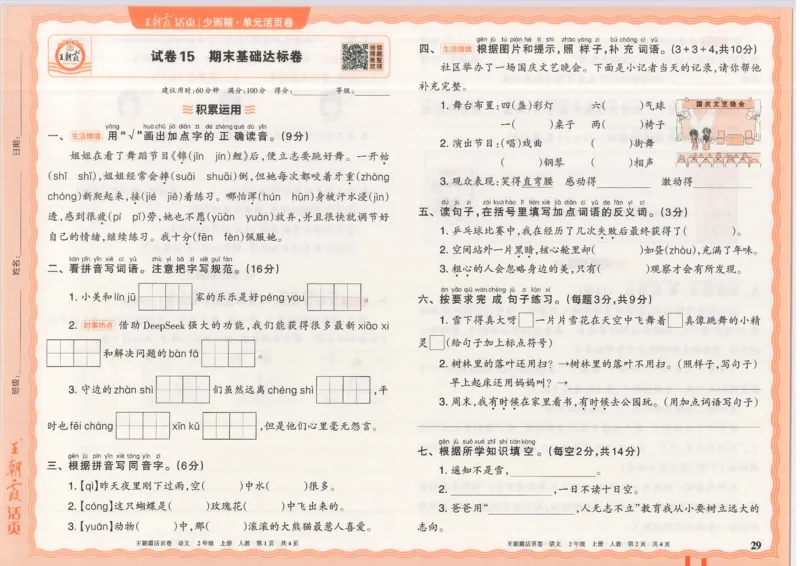 王朝霞活页 少而精·单元活页卷
王朝霞
试卷15 期末基础达标卷
建议用时:60分钟 满分:100分 得分: 等级:
积累运用
yòng huà chū jiā diǎn zì de zhèng què dú yīn
一、生活情境 用“√”画出加点字的正确读音。(9分)
姐姐在看了舞蹈节目《锦(jīn jǐn)鲤》后,便立志要跳好舞。一开始
(shǐ shǐ),姐姐经常会摔(suāi shuāi)倒,但她每次都咬着牙重(zhòng
chóng)新爬起来,接(jié jiē)着练习。哪怕浑(hún hùn)身被汗水浸(jìn)
透,感到很疲(pí pī)劳,她也不愿(yuān yuàn)放弃,并且很快就调节好
自己的情绪,继续练习。我十分(fēn fèn)佩服她。
kàn pīn yīn xiě cí yǔ zhù yì bǎ zì xiě guī fàn
二、看拼音写词语。注意把字写规范。(16分)
1. 小美和lín jū 家的乐乐是好péng you 。
2. 时事热点 借助DeepSeek强大的功能,我们能获得很多最新xiāo xi
和解决问题的bàn fǎ 。
3. 守边的zhàn shì 们虽然远离chéng shì ,平
时也fēi cháng xīn kǔ ,但是他们心里毫无怨言。
gēn jù pīn yīn xiě tóng yīn zì
三、根据拼音写同音字。(6分)
1.【qì】昨天夜里刚下过雨,空( )中水( )很多。
2.【cóng】这只蝴蝶是( )玫瑰花( )中飞出来的。
3.【yuán】动物( )中,那( )滚滚的大熊猫最惹人喜爱。
王朝霞活页卷 语文 2年级 上册 人教 第1页 共4页
日期:
姓名:
班级:
王朝霞活页
gēn jù tú piàn hé tí shì zhào yàng zi bǔ chōng cí yǔ
四、生活情境 根据图片和提示,照样子,补充词语。(3+3+4,共10分)
社区举办了一场国庆文艺晚会。下面是小记者当天的记录,请你帮他
补充完整。
1. 舞台布置:四(盏)彩灯 六( )气球
一( )桌子 两( )椅子
2. 演出节目:(唱)戏曲 ( )街舞
( )钢琴 ( )相声
3. 观众表现:笑得直弯腰 感动得 激动得
国庆文艺晚会
dú jù zi zài kuò hào lǐ tián xiě jiā diǎn cí yǔ de fǎn yì cí
五、读句子,在括号里填写加点词语的反义词。(3分)
1. 乒乓球比赛中,我在经历了几次失败后最终获得了( )。
2. 空间站外一片黑暗,核心舱里却( )如昼(zhòu),充满了年味。
3. 粗心的人会忽略身边的美,只有( )观察才会有所发现。
àn yāo qiú wán chéng jù zi liàn xí
六、按要求完成句子练习。(每题3分,共9分)
1. 雪下得真大呀□一片片雪花在天空中飞舞着□真像跳舞的小精
灵□(给句子加上标点符号)
2. 树林里的落叶还用扫?→树林里的落叶不用扫。(照样子,写句子)
早上起床还用妈妈叫?→
3. 周末,我有时候在家里看书,有时候去公园玩。(用加点词语写句子)
gēn jù suǒ xué zhī shi tián kòng
七、根据所学知识填空。(每空2分,共14分)
1. 遥知不是雪, 。
2. ,一日不读十日空。
3. 爸爸用“ ,人无志不立”教育我从小要树立远大的
志向。
王朝霞活页卷 语文 2年级 上册 人教 第2页 共4页
29